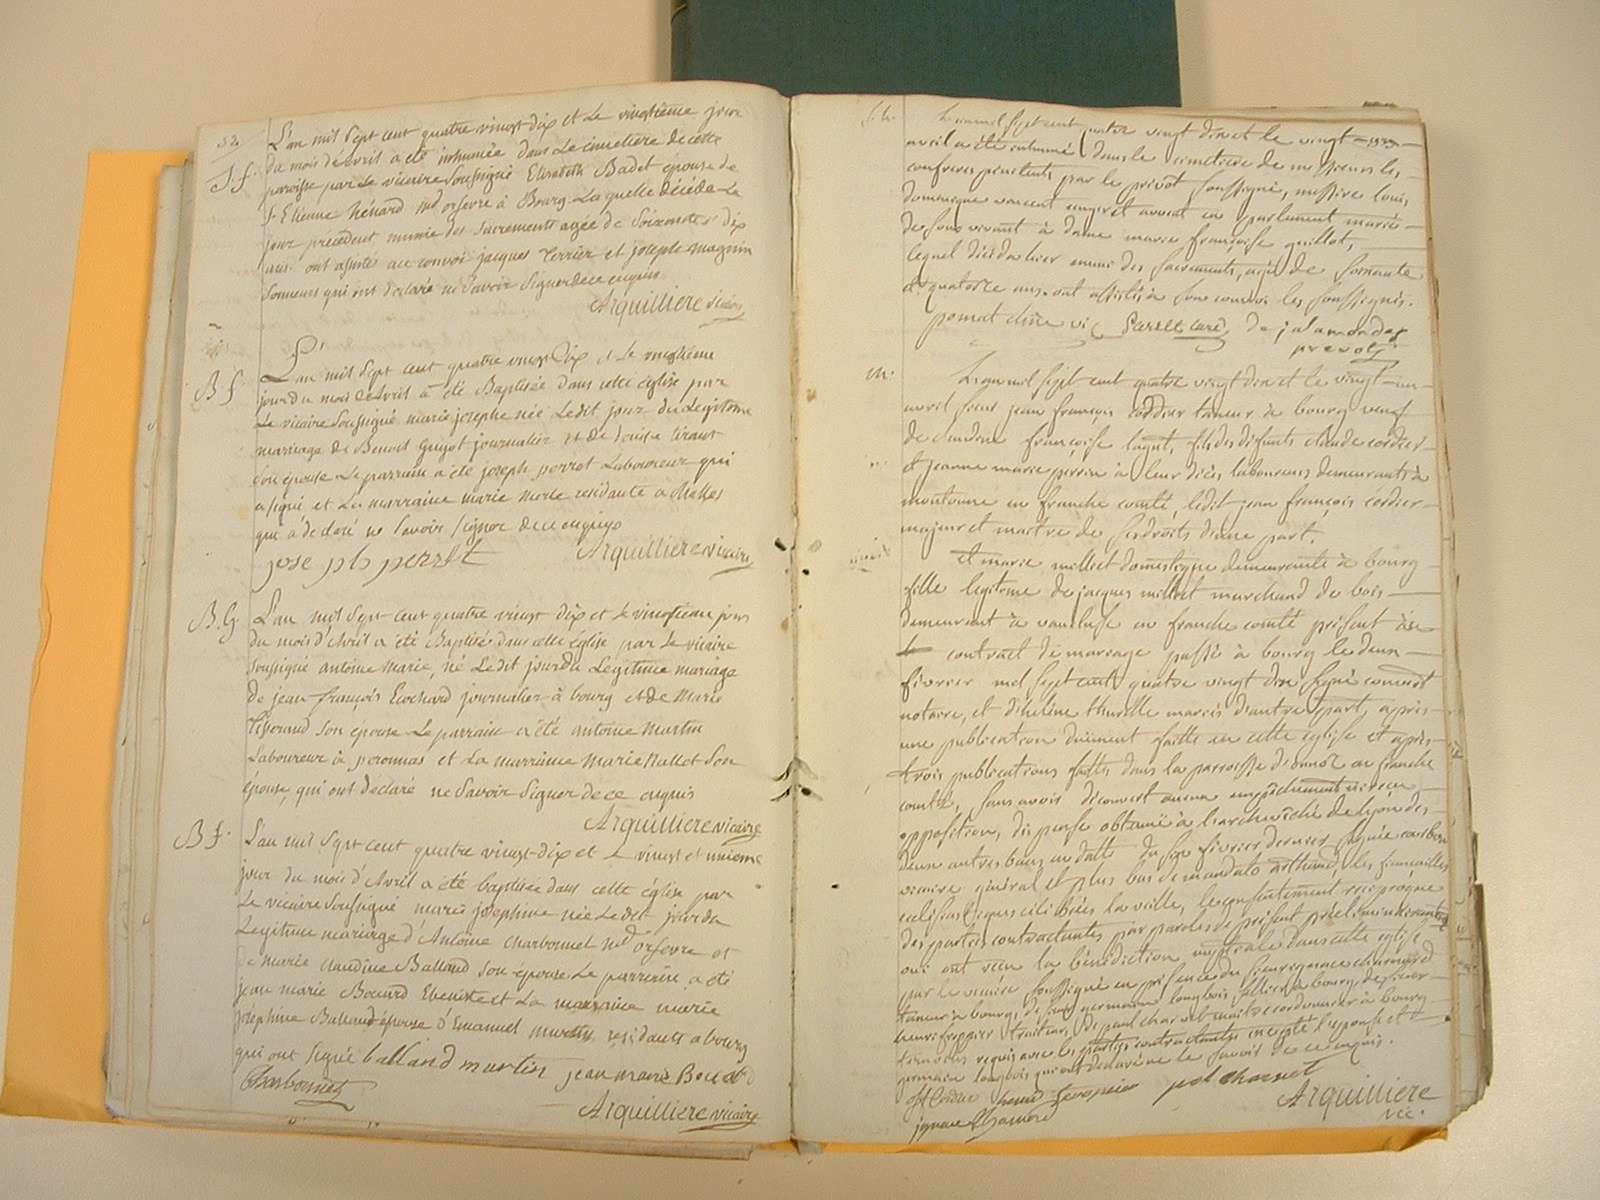 52
S.f.
L'an mil Sept cent quatre vingt dix et Le vingtième jour
du mois d'avril a été inhumée dans Le cimetiere de cette
paroisse par Le vicaire Soussigné Elisabeth Badet épouse de
Sr Etienne hénard md orfevre à Bourg, Laquelle décédée Le
jour précédent munie des Sacrements agée de Soixante et dix
ans. ont assisté au convoi jacques Perrier et joseph magnin
Sonneurs qui ont declaré ne Savoir Signer de ce enquis
Arquilliere vicaire
B f.
L'an mil Sept cent quatre vingt Dix et Le vingtième
jour du mois d'Avril a été Baptisée dans cette église par
Le vicaire Soussigné marie josephe née Ledit jour du Légitime
mariage de Benoit Guyot journalier et de Louise
son épouse. Le parrain a été joseph perret Laboureur qui
a signé et La marraine marie residante a challes
qui a déclaré ne Savoir Signer de ce enquis
joseph perret Arquilliere vicaire
B.G.
L'an mil Sept cent quatre vingt dix et Le vingtieme jour
du mois d'Avril a été Baptisé dans cette église par Le vicaire
Soussigné antoine Marie, né Ledit jour du Légitime mariage
de jean françois Cochard journalier à bourg et de Marie
Tisserand son épouse Le parrain a été antoine Martin
Laboureur à peronnas et La marraine Marie Nallet Son
épouse, qui ont déclaré ne Savoir Signer de ce enquis
Arquilliere vicaire
B f.
L'an mil Sept cent quatre vingt dix et Le vingt et unieme
jour du mois d'Avril a été baptisée dans cette église par
Le vicaire Soussigné marie josephine née Ledit jour du
Légitime mariage d'Antoine charbonnet md orfevre et
de marie claudine Balland Son épouse Le parrain a été
jean marie Bouard Ebeniste et La marraine marie
josephine Balland épouse d'Emanuel martin residants a bourg
qui ont signé balland martin jean marie Bouard
Charbonnet
Arquilliere vicaire
L'an mil sept cent quatre vingt dix et le vingt
avril a été inhumé dans le cimetiere de messieurs les
confreres penitents par le prévôt soussigné, messire louis
dominique vincent avocat en parlement marié
de son vivant à dame marie françoise guillot,
lequel décéda hier muni des sacrements, agé de soixante
et quatorze ans. ont assisté à son convoi les soussignés.
vic curé de jalamondes
prevot
M.
L'an mil sept cent quatre vingt dix et le vingt un
avril sieur jean françois cordier taneur à bourg veuf
de claudine françoise lagut, fils des défunts claude cordier
et jeanne marie perrin à leur décès laboureurs demeurants à
montonne en franche comté, ledit jean françois cordier
majeur et maitre de ses droits d'une part.
Et marie millet domestique demeurante à bourg
fille legitime de jacques millet marchand de bois
demeurant à vaucluse en franche comté présent au
contract de mariage passé à bourg le deux
février mil sept cent quatre vingt dix signé
notaire, et d'helene thurelle mariés d'autre part, après
une publication dûment faitte en cette église et après
trois publications faittes dans la parroisse d' en franche
comté, sans avoir découvert aucun empêchement ni reçu
opposition, dispense obtenuë à l'archevêché de lyon des
deux autres bans en datte du février dernier signée
vicaire général et plus bas de mandato les fiançailles
célébrées la veille, le consentement réciproque
des parties contractantes par paroles de présent
oui ont reçu la bénédiction nuptiale dans cette église
par le vicaire soussigné en présence du sieur ignace chamard
taneur à bourg, de sieur germain longbois sellier à bourg, de sieur
henri traiteur, de paul charvet maitre cordonnier à bourg
témoins requis avec les parties contractantes excepté l'epouse et
germain longbois qui ont déclaré ne le savoir de ce enquis.
jf Cordier henri pol charvet
ignace Chamard Arquilliere
vic.